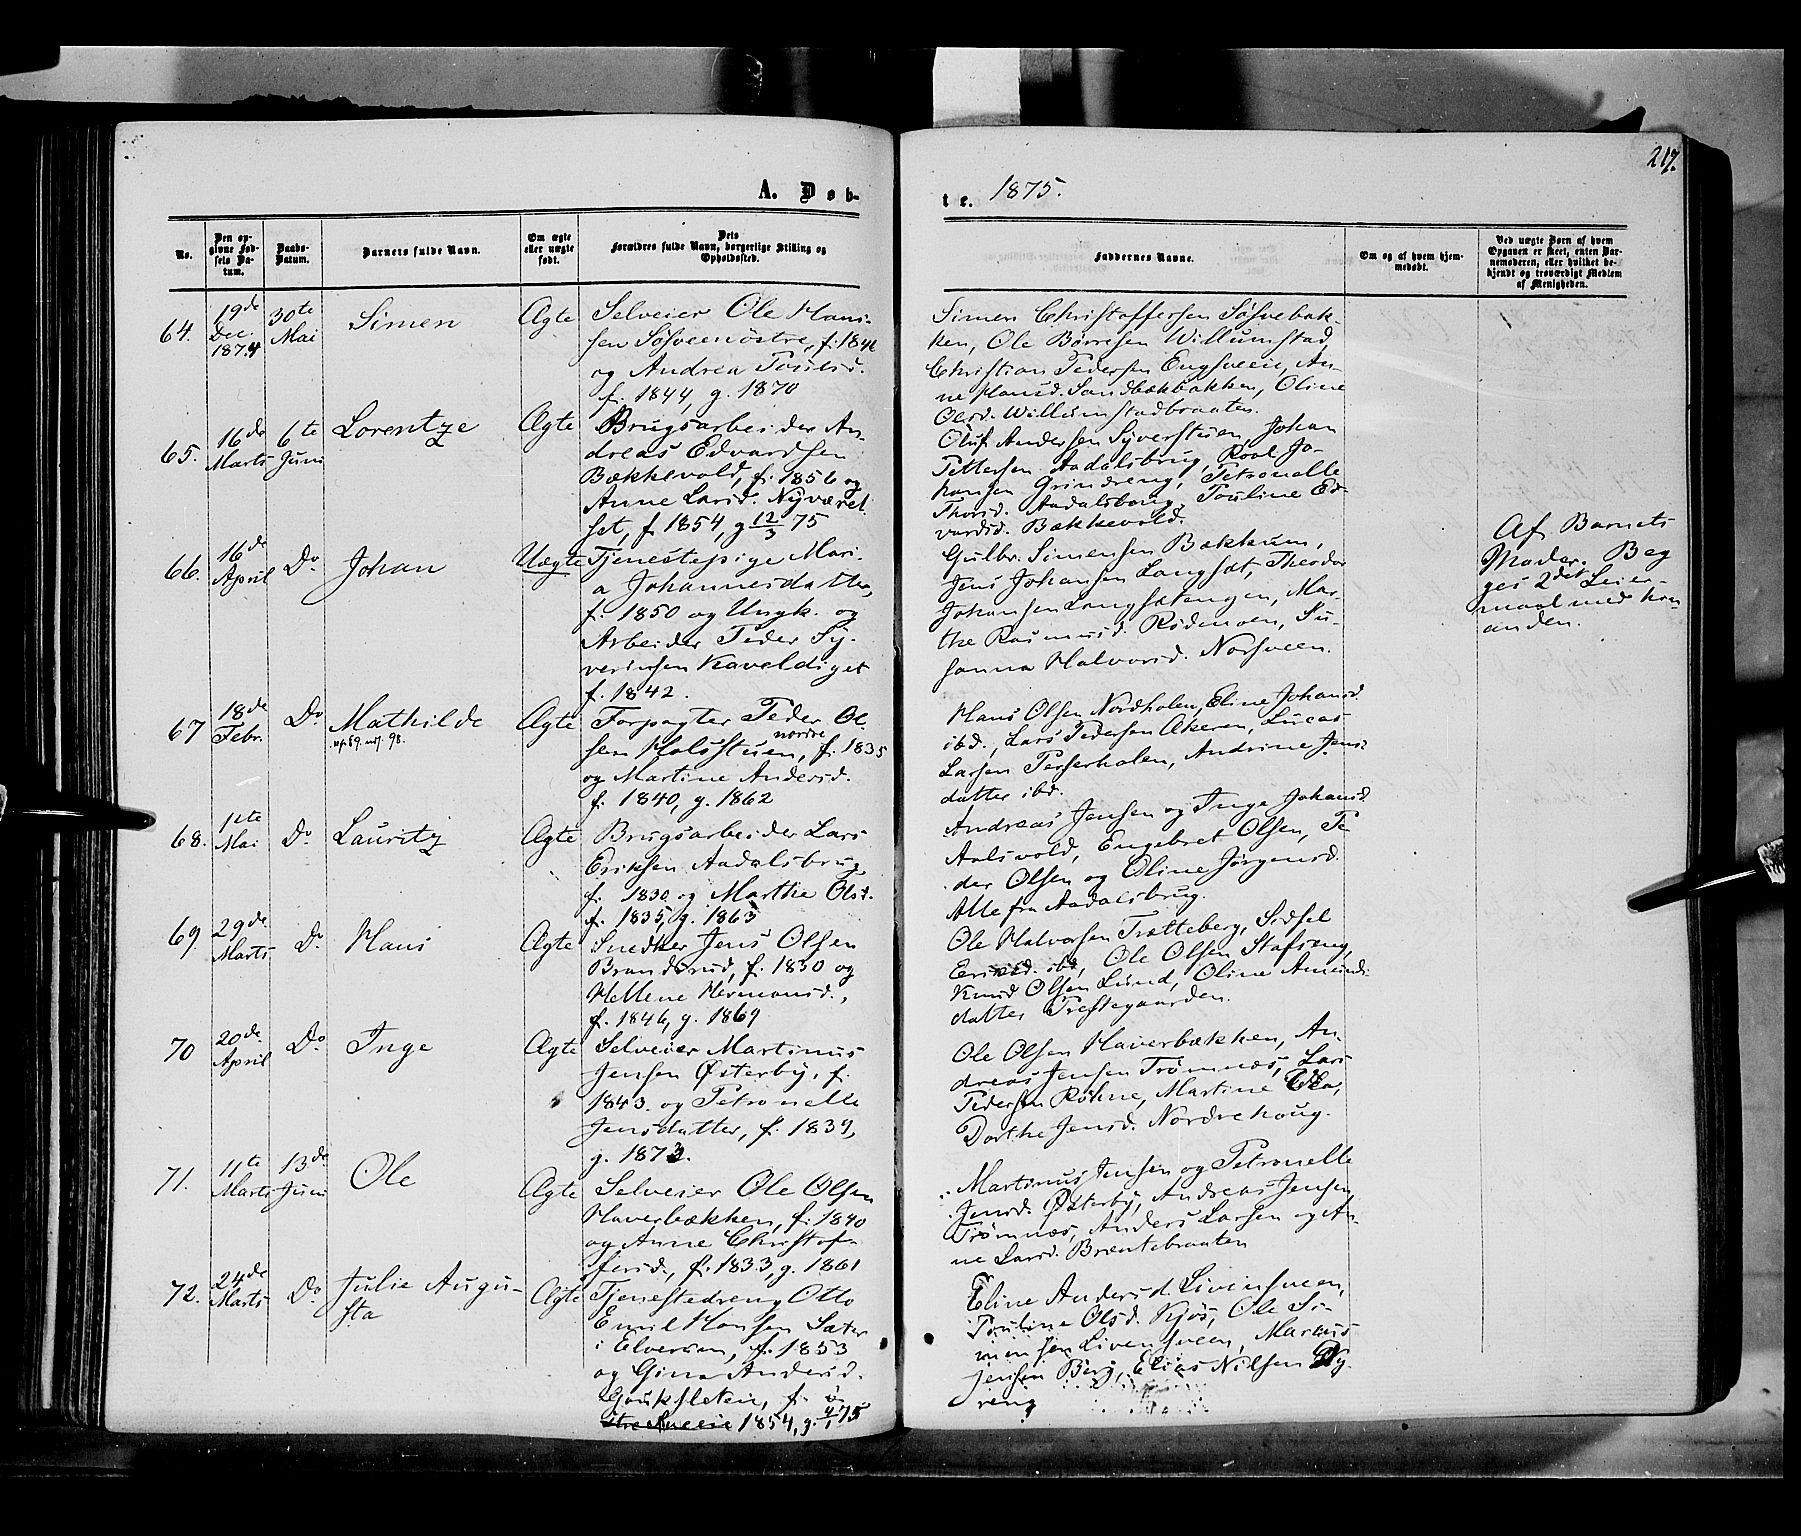 217.
A. Døb-
te. 1875.
No.
Den opgivne Fødsels Datum.
Daabs-Datum.
Barnets fulde Navn.
Om ægte eller uægte født.
Dets Forældres fulde Navn, borgerlige Stilling og Opholdssted.
Faddernes Navne.
Om og af hvem hjemmedøbt.
Ved uægte Børn af hvem Opgaven er skeet, enten Barnemoderen, eller hvilket bekjendt og troværdigt Medlem af Menigheden.
64. 19de Dec. 1874 30te Mai Simen Ægte
Selveier Ole Han-
sen Søsveenøstre, f. 184
og Andrea Poulsd.
f. 1844, g. 1870
Simen Christoffersen Søsvebak-
ken, Ole Børresen Willumstad,
Christian Pedersen Engsveen, An-
ne Hansd. Sandbækbakken, Oline
Olsd. Willumstadbraaten.
65. 16de Marts 6te Juni Lorentze Ægte
Brugsarbeider An-
dreas Edvardsen
Bækkevold, f. 1856 og
Anne Larsd. Nyværel-
set, f. 1854, g 12/3 75
Oluf Andersen Syverstuen, Johan
Pettersen Aadalsbrug, Roal Jo-
hansen Grindreng, Petronelle
Thorsd. Aadalsbrug, Pouline Ed-
vardsd. Bækkevold.
66. 16de April Do Johan Uægte
Tjenestepige Mari-
a Johannesdatter,
f. 1850 og Ungk. og
Arbeider Peder Sy-
verinsen Kaveldiget
f. 1842.
Gulbr. Simensen Bækkum,
Jens Johansen Langsæt, Theodor
Johansen Langsætengen, Mar-
the Rasmusd. Rødmoen, Su-
sanna Halvorsd. Norsveen.
Af Barnets
Moder. Beg-
ges 2det Leier-
maal med hin-
anden.
67 18de Febr. Do Mathilde Ægte
Forpagter Peder Ol-
nordre
sen Holsstuen, f. 1835
og Martine Andersd.
f. 1840, g. 1862
Hans Olsen Nordholen, Eline Johansd.
ibd., Lars Pedersen Akeren, Lucas
Larsen Perserholen, Andrine Jens-
datter ibd.
68. 1ste Mai Do. Lauritz Ægte
Brugsarbeider Lars
Eriksen Aadalsbrug,
f. 1830 og Marthe Olsd.
f. 1835, g. 1863
Andreas Jensen og Inge Johansd.
Aalsvold, Engebret Olsen, Pe-
der Olsen og Oline Jørgensd.
Alle fra Aadalsbrug.
69. 29de Marts Do Hans Ægte
Snedker Jens Olsen
Brandsrud, f. 1850 og
Hellene Hermansd.,
f. 1846, g. 1869
Ole Halvorsen Trætteberg, Sidsel
Eriksd. ibd, Ole Olsen Stafseng,
Knud Olsen Lund, Oline Amunds-
datter Prestegaarden.
70 20de April Do Inge Ægte
Selveier Martinus
Jensen Østerby, f.
1843. og Petronelle
Jensdatter, f. 1839,
g. 1873.
Ole Olsen Haverbækken, An-
dreas Jensen Trømnæs, Lars
Pedersen Røhne, Martine
Dorthe Jensd. Nordrehoug.
71. 11te Marts 13de Juni Ole Ægte
Selveier Ole Olsen
Haverbækken, f. 1840
og Anne Christof-
fersd., f. 1833, g. 1861
Martinus Jensen og Petronelle
Jensd. Østerby, Andreas Jensen
Trømnæs, Anders Larsen og An-
ne Larsd. Bræntebraaten
72. 24de Marts Do Julie Augu-
sta Ægte
Tjenestedreng Otto
Emil Hansen Sæter
i Elverum, f. 1853
og Gina Andersd.
Goukfleten, f.
1854, g. 75
Eline Andersd. Livensveen,
Pouline Olsd. Kjos, Ole Si-
mensen Livensveen, Marius
Jensen Berg, Elias Nilsen Ny-
reng